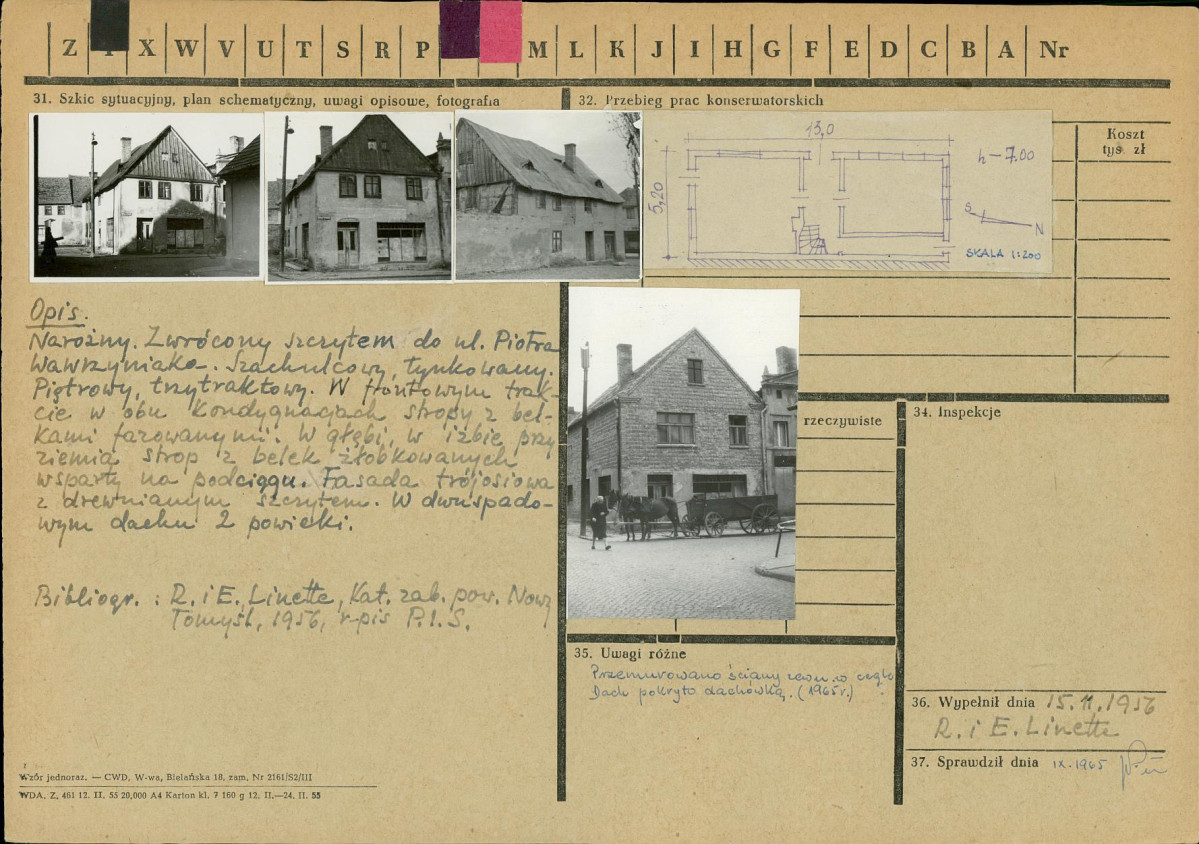 Z Ż X W V U T S R P M L K J I H G F E D C B A Nr
31. Szkic sytuacyjny, plan schematyczny, uwagi opisowe, fotografia
32. Przebieg prac konserwatorskich
Koszt
tys. zł
13,0
5,20
h – 7.00
S
N
SKALA 1:200
Opis.
Narożny. Zwrócony szczytem do ul. Piotra
Wawrzyniaka. Szachulcowy, tynkowany.
Piętrowy, trzytraktowy. W frontowym trak-
cie w obu kondygnacjach stropy z bel-
kami fazowanymi. W głębi, w izbie przy
ziemia strop z belek żłobkowanych
wsparty na podciągu. Fasada trójosiowa
z drewnianym szczytem. W dwuspado-
wym dachu 2 powieki.
Bibliogr. : R. i E. Linette, Kat. zab. pow. Nowy
Tomyśl, 1956, r-pis P.I.S.
rzeczywiste
34. Inspekcje
35. Uwagi różne
Przemurowano ściany zewn. w cegle
Dach pokryto dachówką. (1965 r.)
36. Wypełnił dnia 15.11.1956
R. i E. Linette
37. Sprawdził dnia IX.1965
Wzór jednoraz. — CWD, W-wa, Bielańska 18, zam. Nr 2161/S2/III
WDA. Z. 461 12. II. 55 20,000 A4 Karton kl. 7 160 g 12. II.—24. II. 55